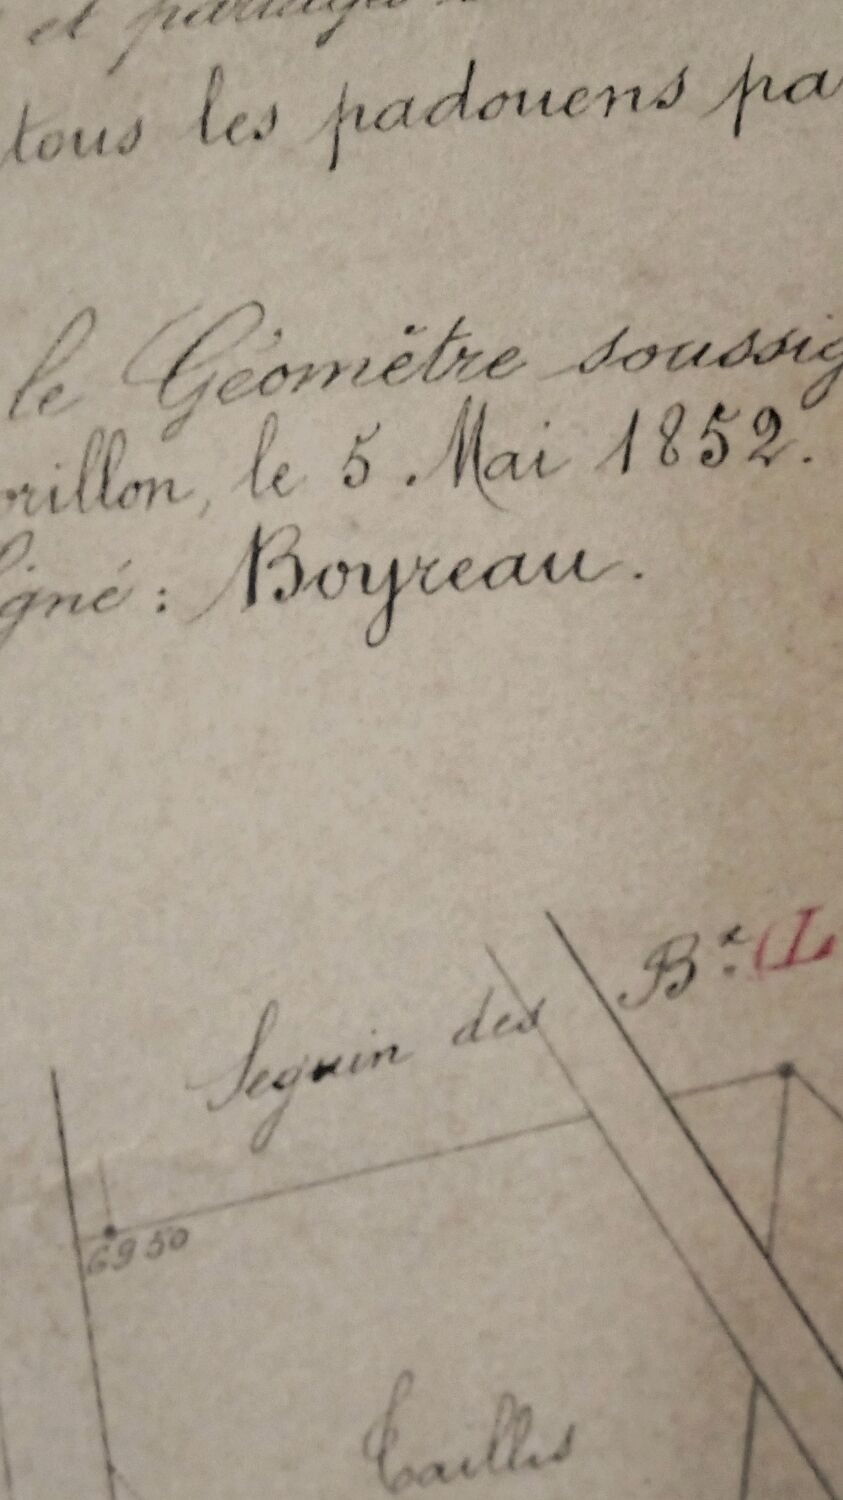 et partages
tous les padouens pa
le Géomètre soussig
orillon, le 5 Mai 1852.
igné : Boyreau.
Seguin des Bx. (L
69 50
Taillis